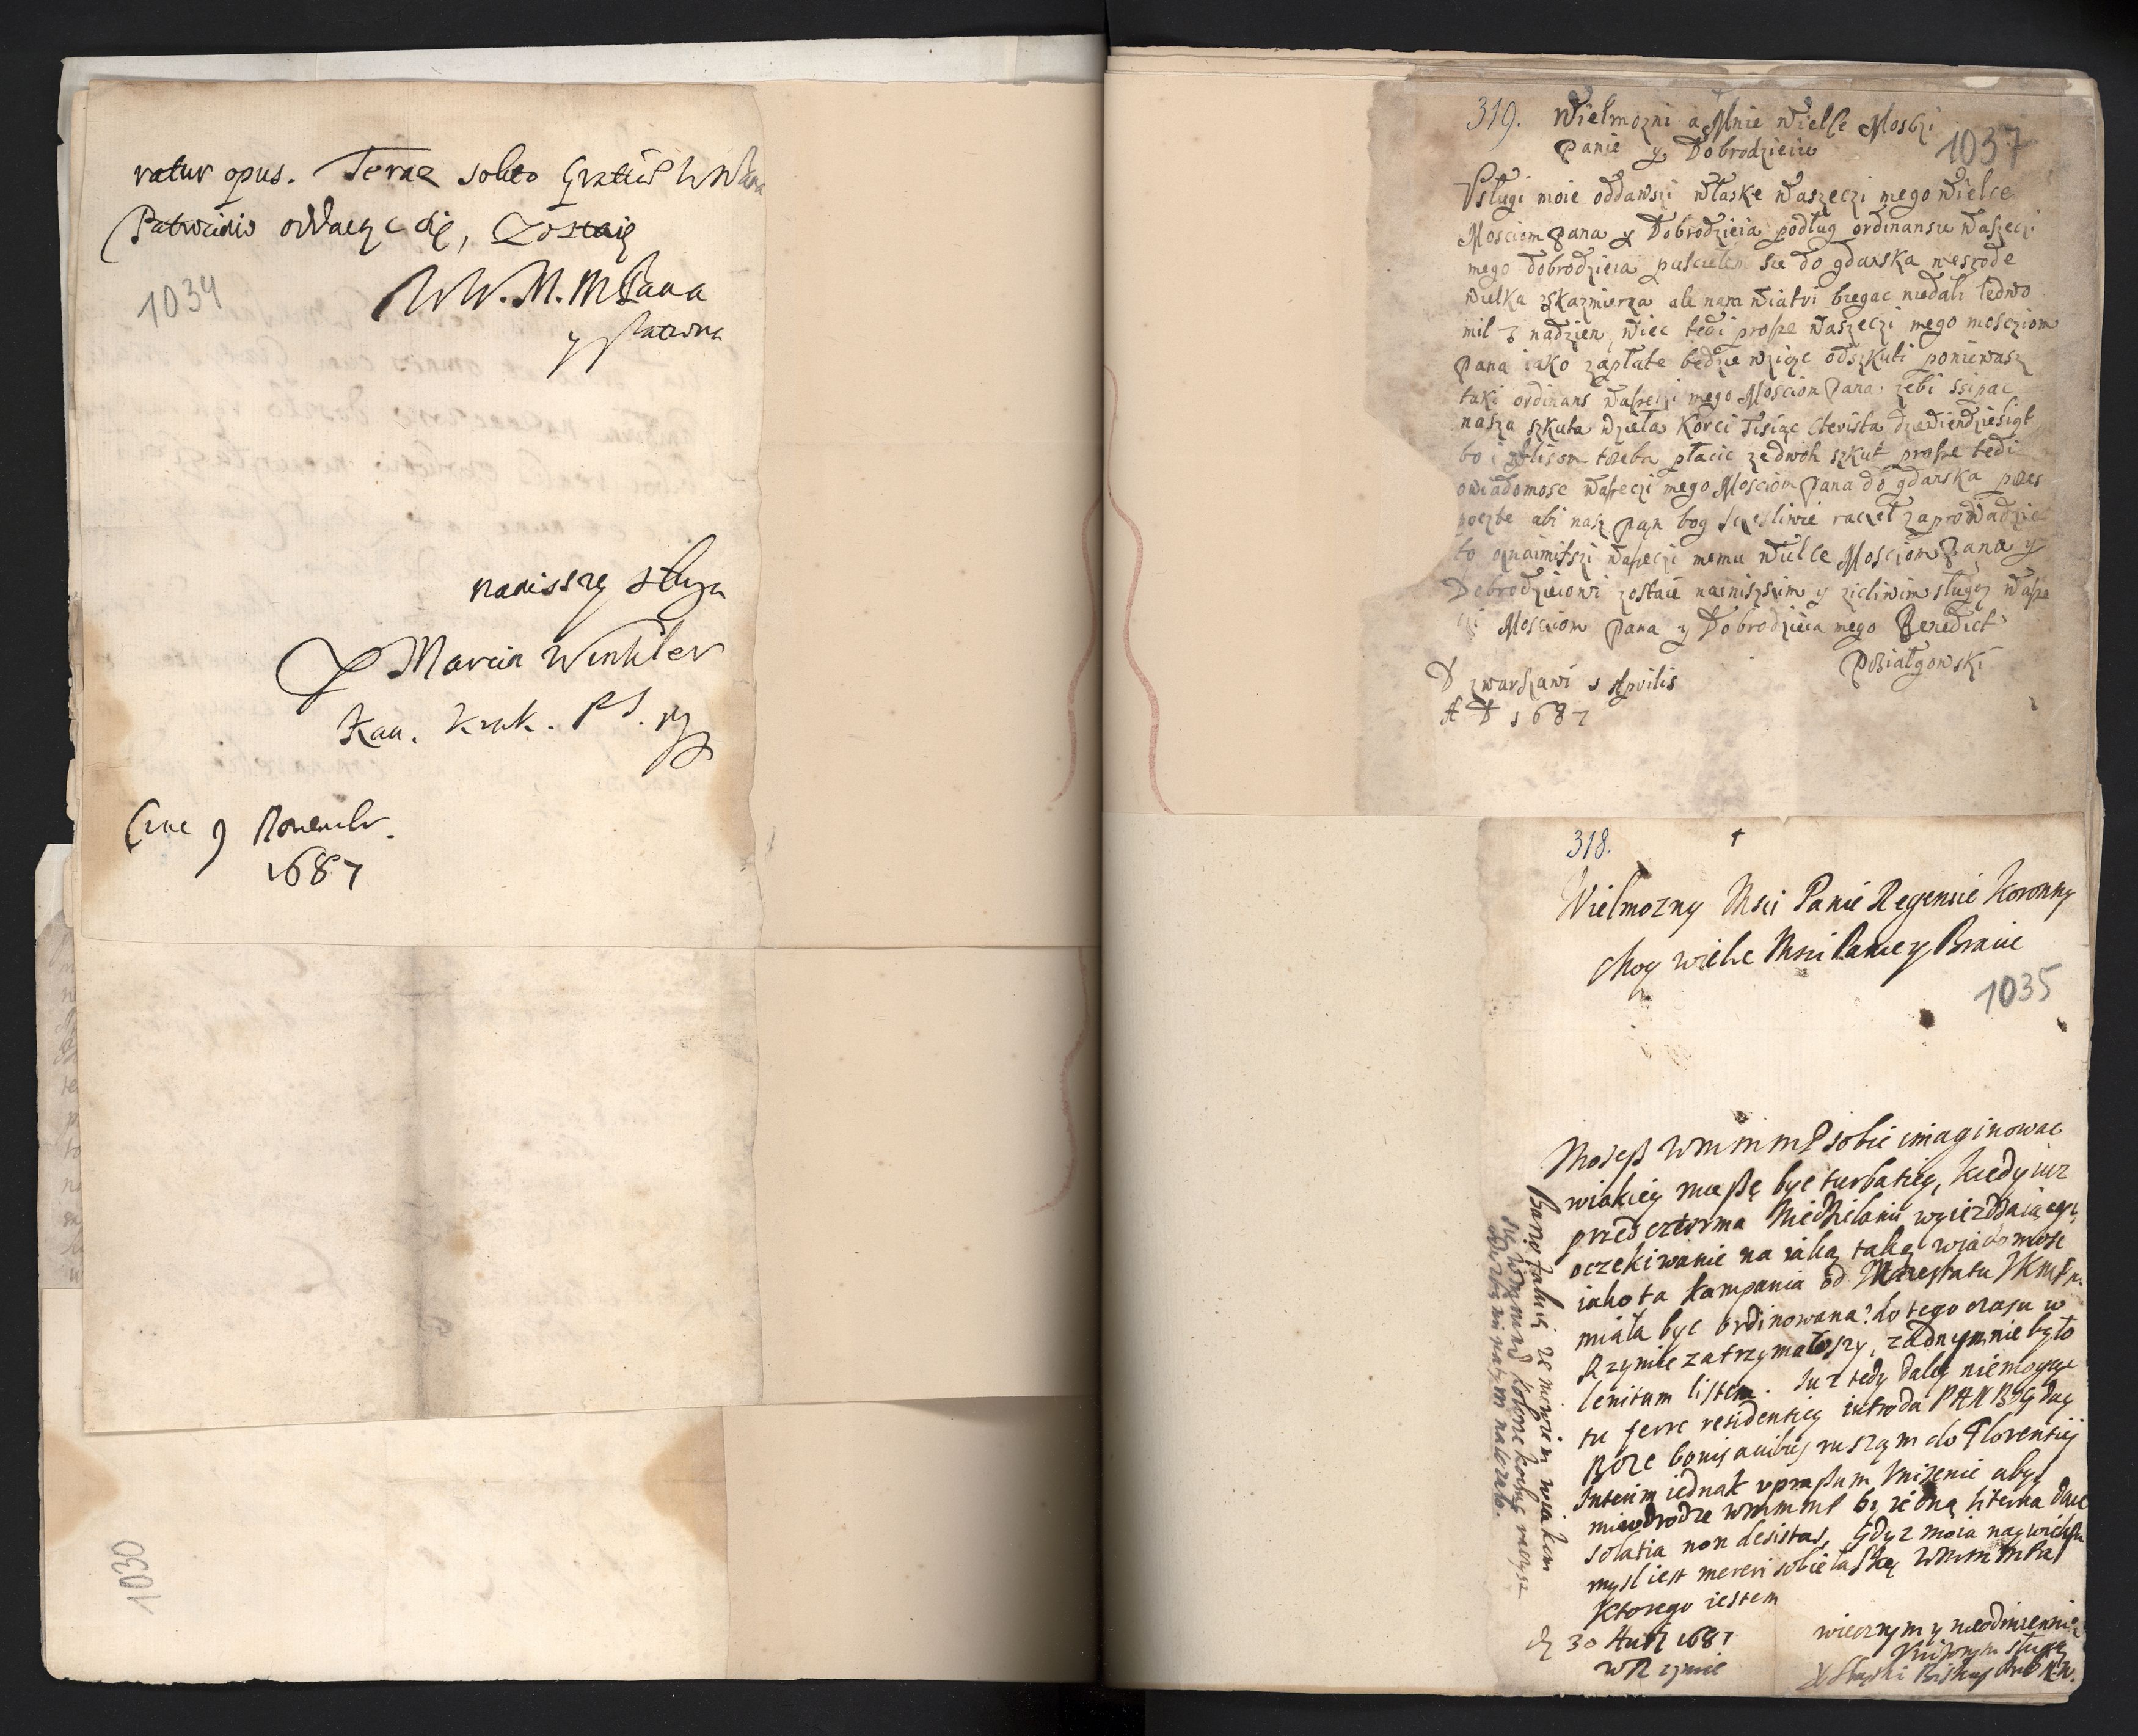 ratur opus. Teraz solito Gratiis WMPana
Patrocinio oddaiąc się, Zostaię
1034
WW. M. MPana
y Patrona
naniszszy sługa
X Marcin Winkler
Kan. Krak. PS. mp
9 Novembr.
1687
1030
319. Wielmozni a Mnie Wielce Mosczi
Panie y Dobrodzieiu
1037
Usługi moie oddawszi właske waszeczi mego wielce
Mosciom Pana y Dobrodzieia podług ordinansu waszeci
mego dobrodzieia pusciłem sie do gdanska weszrode
wielka zkazmierza ale nam wiatri biegac niedali ledwo
mil 3 nadzien wiec tedi prosze waszeczi mego mosciom
Pana iako zapłate bedzie wziąc odszkuti poniewasz
taki ordinans waszeczi mego Mosciom Pana zebi ssipac
nasza szkuta wzieła Korci Tisiąc cterista dziewiendziesiąt
bo i trzeba płacic zedwoh szkut prosze tedi
owiadomosc waszeczi mego Mosciom Pana do gdanska przes
poczte abi nasz Pan bog sczesliwie raczeł zaprowadzic
to oznaimiszi waszeczi memu Wielce Mosciom Pana y
Dobrodzieiowi zostaie nainiszszim y zicliwim sługą wasze
czi Mosciom Pana y Dobrodzieia mego Benedict
D zwarszawi 5 Aprilis
A D 1687
318. +
Wielmozny Msci Panie Regensie Koronny
Moy wielce Msci Panie y Bracie
1035
Mozesz WMMMP sobie imaginowac
wiakiey muszę byc turbatiey, kiedy iuz
przed czterma Niedzielami wyiezdzaiącego
oczekiwanie na iaką taką wiadomosc
iako ta kampania od Maiestatu JKM
miała byc ordinowana? do tego czasu w
Rzymie zatrzymałoszy, zadnym nie było
lenitum listem. Juz tedy daley niemogąc
tu ferre residentiey iutro da PAN BOG
Boze bonis avibus ruszam do Florentiey
Interim iednak upraszam Unizenie abys
miwdrodze WMMMP by iedną litera dac
solatia non desistas, Gdyz moia naywieksza
mysl iest mereri sobie łaskę WMMMPa
Ktorego iestem
D 30 1687
w Rzymie
wiecznym y nieodmiennie
sługą
Barzo załuię ze niewiem wiakim
odzrbą mi natym nalezało.